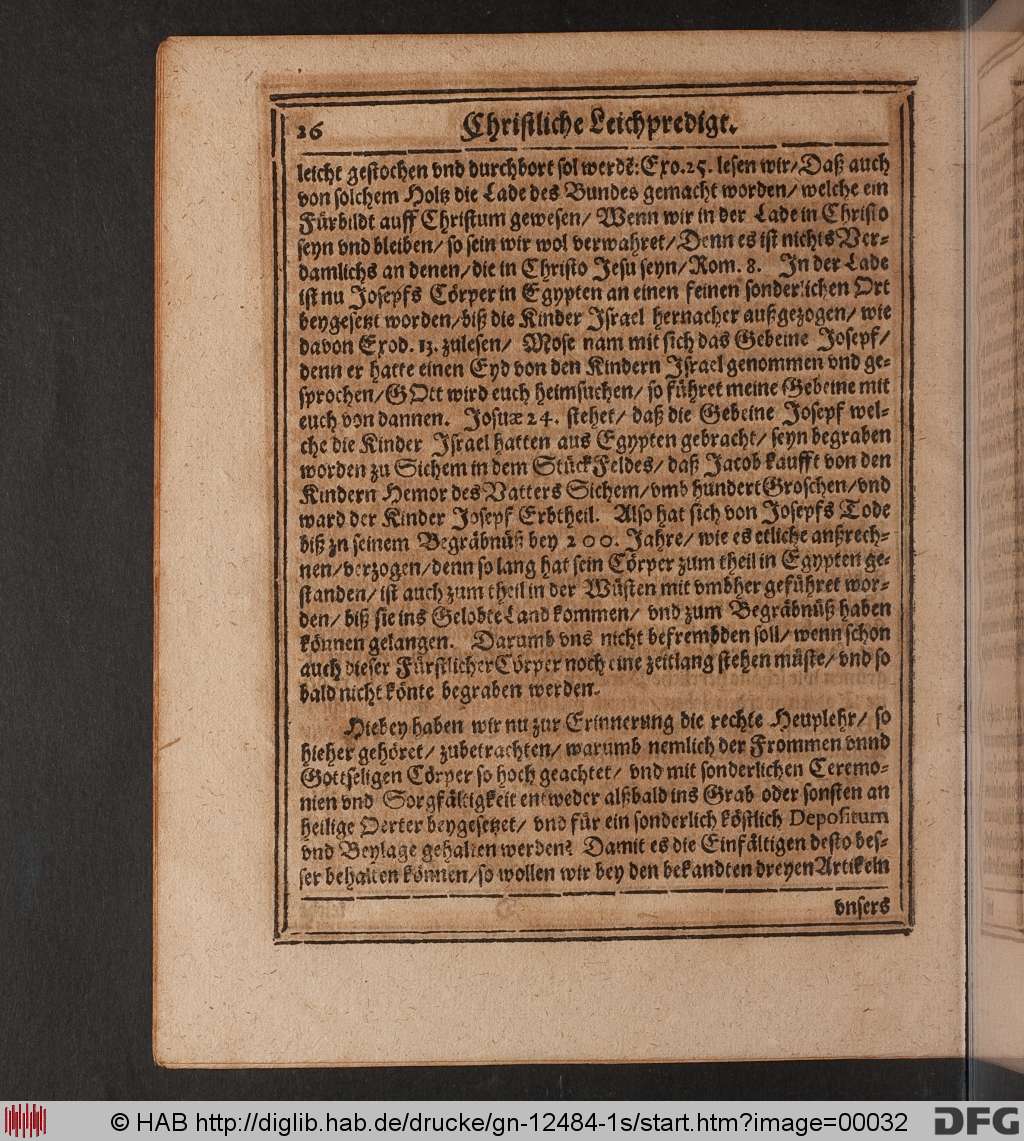 26 Christliche Leichpredigt.
leicht gestochen vnd durchbort sol werdẽ: Exo. 25. lesen wir/ Daß auch
von solchem Holtz die Lade des Bundes gemacht worden/ welche ein
Fürbildt auff Christum gewesen/ Wenn wir in der Lade in Christo
seyn vnd bleiben/ so sein wir wol verwahret/ Denn es ist nichts Ver-
damlichs an denen/ die in Christo Jesu seyn/ Rom. 8. In der Lade
ist nu Josepfs Cörper in Egypten an einen feinen sonderlichen Ort
beygesetzt worden/ biß die Kinder Israel hernacher außgezogen/ wie
davon Exod. 13. zulesen/ Mose nam mit sich das Gebeine Josepf/
denn er hatte einen Eyd von den Kindern Israel genommen vnd ge-
sprochen/ GOtt wird euch heimsuchen/ so führet meine Gebeine mit
euch von dannen. Josuæ 24. stehet/ daß die Gebeine Josepf wel-
che die Kinder Israel hatten aus Egypten gebracht/ seyn begraben
worden zu Sichem in dem Stück Feldes/ daß Jacob kaufft von den
Kindern Hemor des Vatters Sichem/ vmb hundert Groschen/ vnd
ward der Kinder Josepf Erbtheil. Also hat sich von Josepfs Tode
biß zn seinem Begräbnüß bey 200. Jahre/ wie es etliche anßrech-
nen/ verzogen/ denn so lang hat sein Cörper zum theil in Egypten ge-
standen/ ist auch zum theil in der Wüsten mit vmbher geführet wor-
den/ biß sie ins Gelobte Land kommen/ vnd zum Begräbnüß haben
können gelangen. Darumb vns nicht befrembden soll/ wenn schon
auch dieser Fürstlicher Cörper noch eine zeitlang stehen müste/ vnd so
bald nicht könte begraben werden.
Hiebey haben wir nu zur Erinnerung die rechte Heuplehr/ so
hieher gehöret/ zubetrachten/ warumb nemlich der Frommen vnnd
Gottseligen Cörper so hoch geachtet/ vnd mit sonderlichen Ceremo-
nien vnd Sorgfältigkeit entweder alßbald ins Grab oder sonsten an
heilige Oerter beygesetzet/ vnd für ein sonderlich köstlich Depositum
vnd Beylage gehalten werden? Damit es die Einfältigen desto bes-
ser behalten können/ so wollen wir bey den bekandten dreyen Artikeln
vnsers
© HAB http://diglib.hab.de/drucke/gn-12484-1s/start.htm?image=00032
DFG